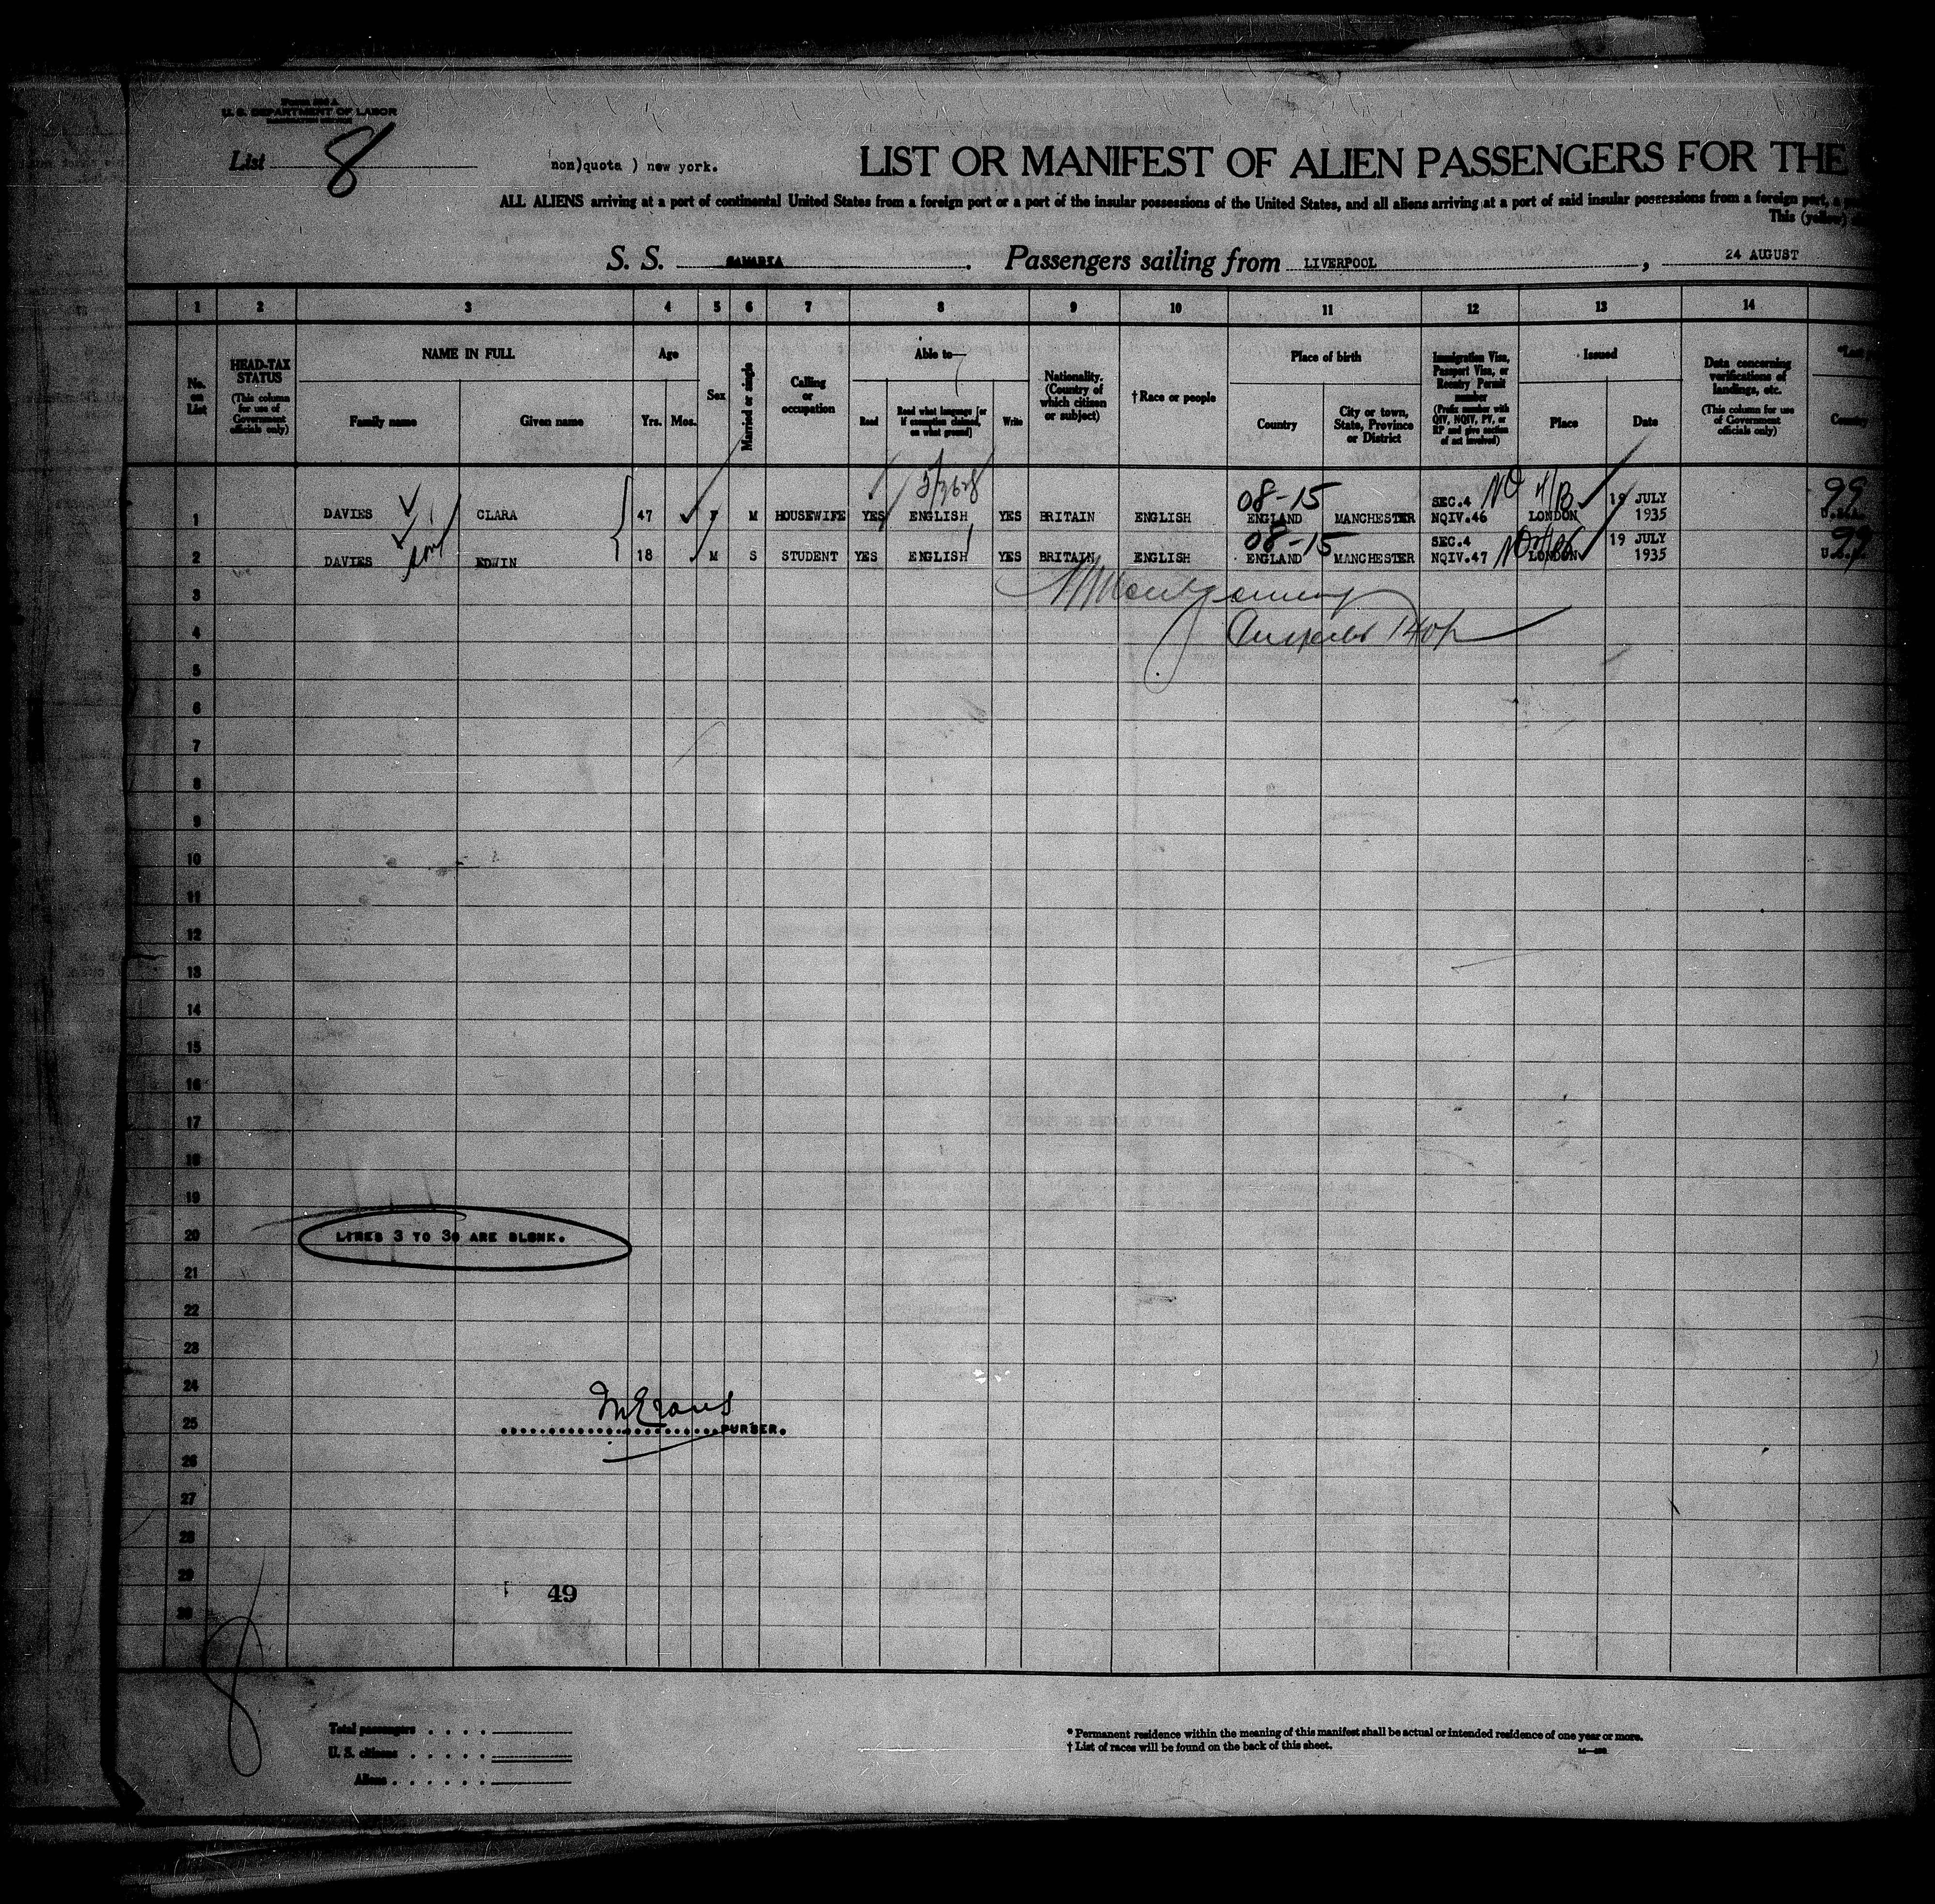 U. S. DEPARTMENT OF LABOR
List 8
non)quota ) new york.
LIST OR MANIFEST OF ALIEN PASSENGERS FOR THE
ALL ALIENS arriving at a port of continental United States from a foreign port or a port of the insular possessions of the United States, and all aliens arriving at a port of said insular possessions from a foreign port, a
This (yellow)
S. S. SAMARIA. Passengers sailing from LIVERPOOL, 24 AUGUST
1 2 3 4 5 6 7 8 9 10 11 12 13 14
No. on List
HEAD-TAX STATUS (This column for use of Government officials only)
NAME IN FULL
Family name Given name
Age
Yrs. Mos.
Sex
Married or single
Calling or occupation
Able to—
Read Read what language [or if exemption claimed, on what ground] Write
Nationality. (Country of which citizen or subject)
† Race or people
Place of birth
Country City or town, State, Province or District
Immigration Visa, Passport Visa, or Reentry Permit number (Prefix number with QIV, NQIV, PV, or RP and give section of act involved)
Issued
Place Date
Data concerning verifications of landings, etc. (This column for use of Government officials only)
Country
08-15 99
1 DAVIES CLARA 47 F M HOUSEWIFE YES ENGLISH YES BRITAIN ENGLISH ENGLAND MANCHESTER SEC.4 NQIV.46 LONDON 19 JULY 1935 U.S.A.
08-15 99
2 DAVIES EDWIN 18 M S STUDENT YES ENGLISH YES BRITAIN ENGLISH ENGLAND MANCHESTER SEC.4 NQIV.47 LONDON 19 JULY 1935 U.S.A.
3 Montgomery
4
5
6
7
8
9
10
11
12
13
14
15
16
17
18
19
20 LINES 3 TO 30 ARE BLANK.
21
22
23
24
25 M Evans PURSER.
26
27
28
29
49
30
8
Total passengers
U. S. citizens
Aliens
* Permanent residence within the meaning of this manifest shall be actual or intended residence of one year or more.
† List of races will be found on the back of this sheet.